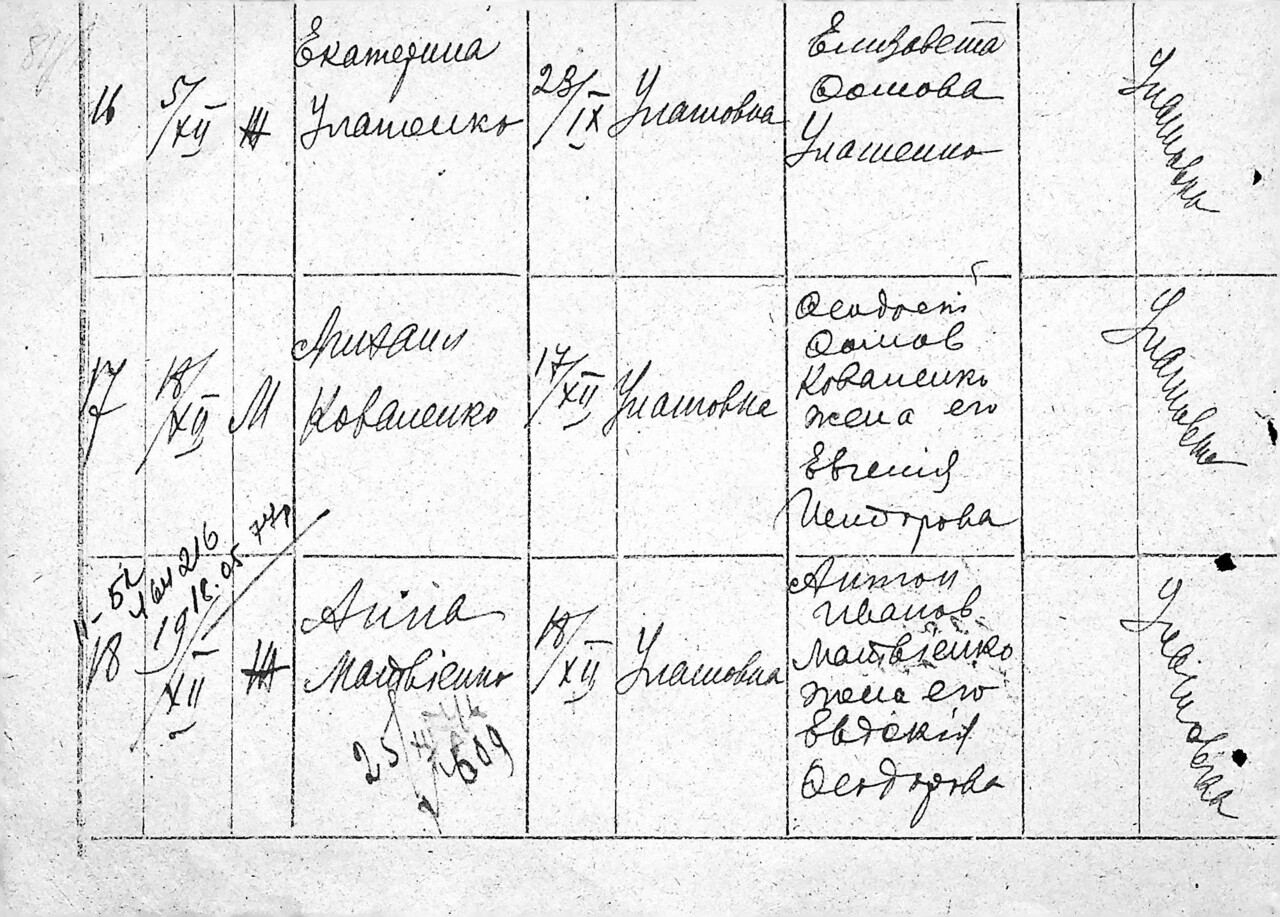 16
5/XII
Ж
Екатерина
Улашенко
23/IX
Улашовка
Елизовета
Фомова
Улашенко
Улашовка
17
18/XII
М
Михаил
Коваленко
17/XII
Улашовка
Феодосій
Фомов
Коваленко
жена его
Евгенія
Исидорова
Улашовка
164216
18.05 77г
18
19/XII
Ж
Анна
Матвіенко
25/
609
18/XII
Улашовка
Антон
Иванов
Матвіенко
жена его
Евдокія
Феодорова
Улашовка